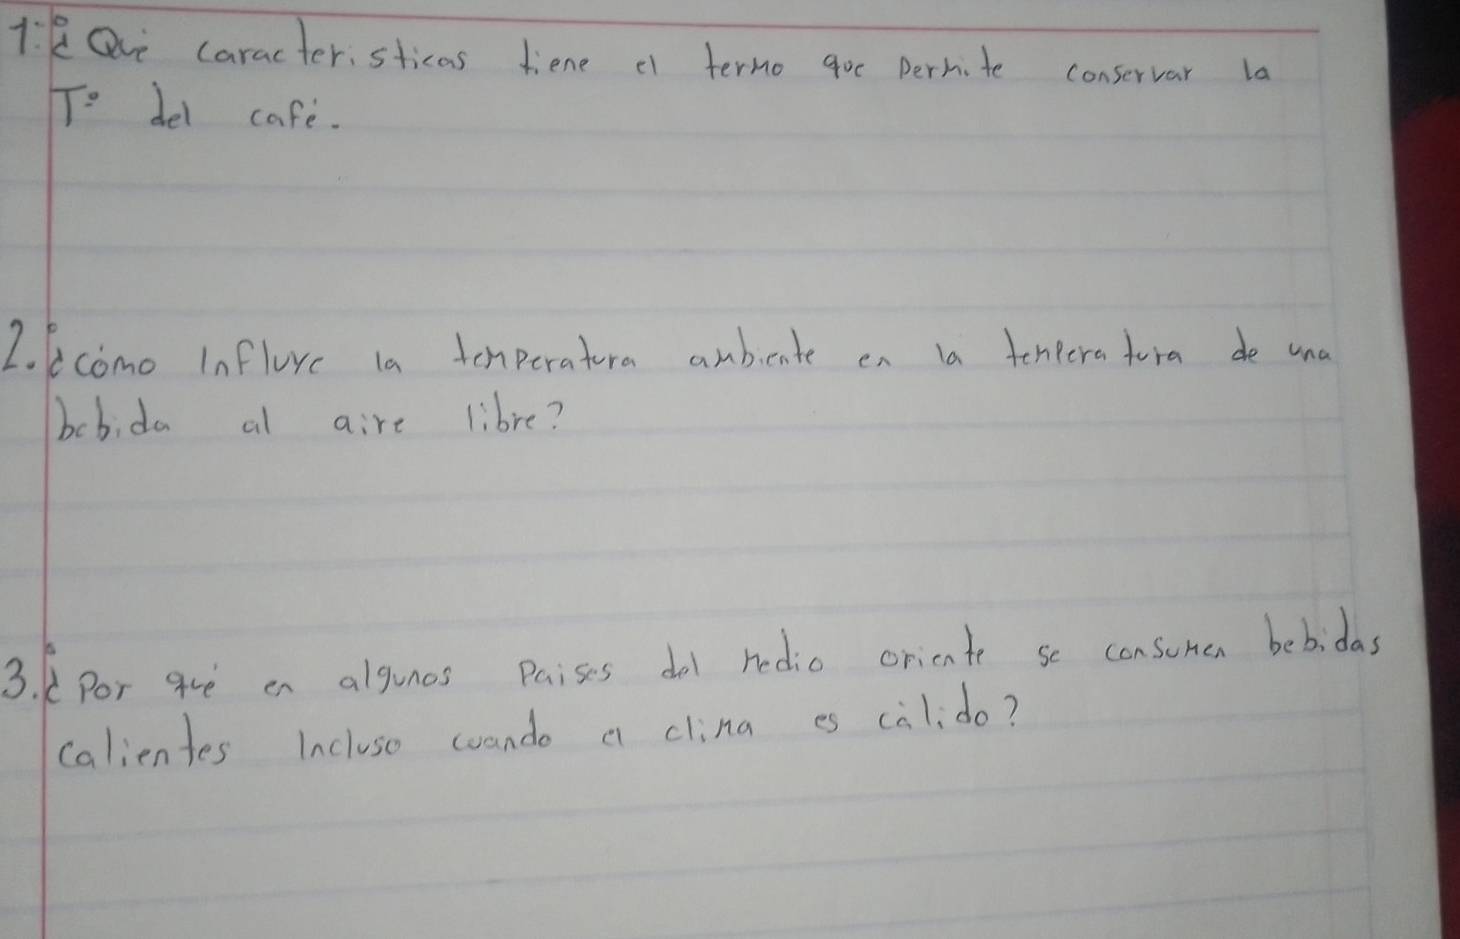 1. ¿Qué caracteristicas tiene el termo que permite conservar la
T° del café.
2. ¿cómo influye la temperatura ambiente en la temperatura de una
bebida al aire libre?
3. ¿Por qué en algunos Paises del medio oriente se consumen bebidas
calientes incluso cuando el clima es cálido?